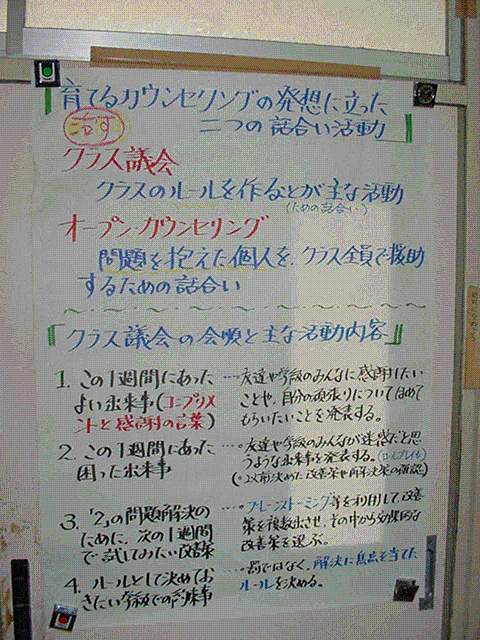 『育てるカウンセリングの発想に立った
話す
二つの話合い活動』
クラス議会
クラスのルールを作ることが主な活動
(ための話合い)
オープン・カウンセリング
問題を抱えた個人を、クラス全員で援助
するための話合い
『クラス議会の会順と主な活動内容』
1. この1週間にあった
よい出来事(コンプリメ
ントと感謝の言葉)
…友達や学級のみんなに感謝したい
ことや、自分の頑張りについてほめて
もらいたいことを発表する。
2. この1週間にあった
困った出来事
…友達や学級のみんなが迷惑だと思
うような出来事を発表する。(ロールプレイも)
(・以前決めた改善策や解決策の確認)
3. 「2」の問題解決の
ために、次の1週間
で試してみたい改善策
…ブレーンストーミング等を利用して改善
策を複数出させ、その中から効果的な
改善策を選ぶ。
4. ルールとして決めてお
きたい学級での約束事
…罰ではなく、解決に焦点を当てた
ルールを決める。